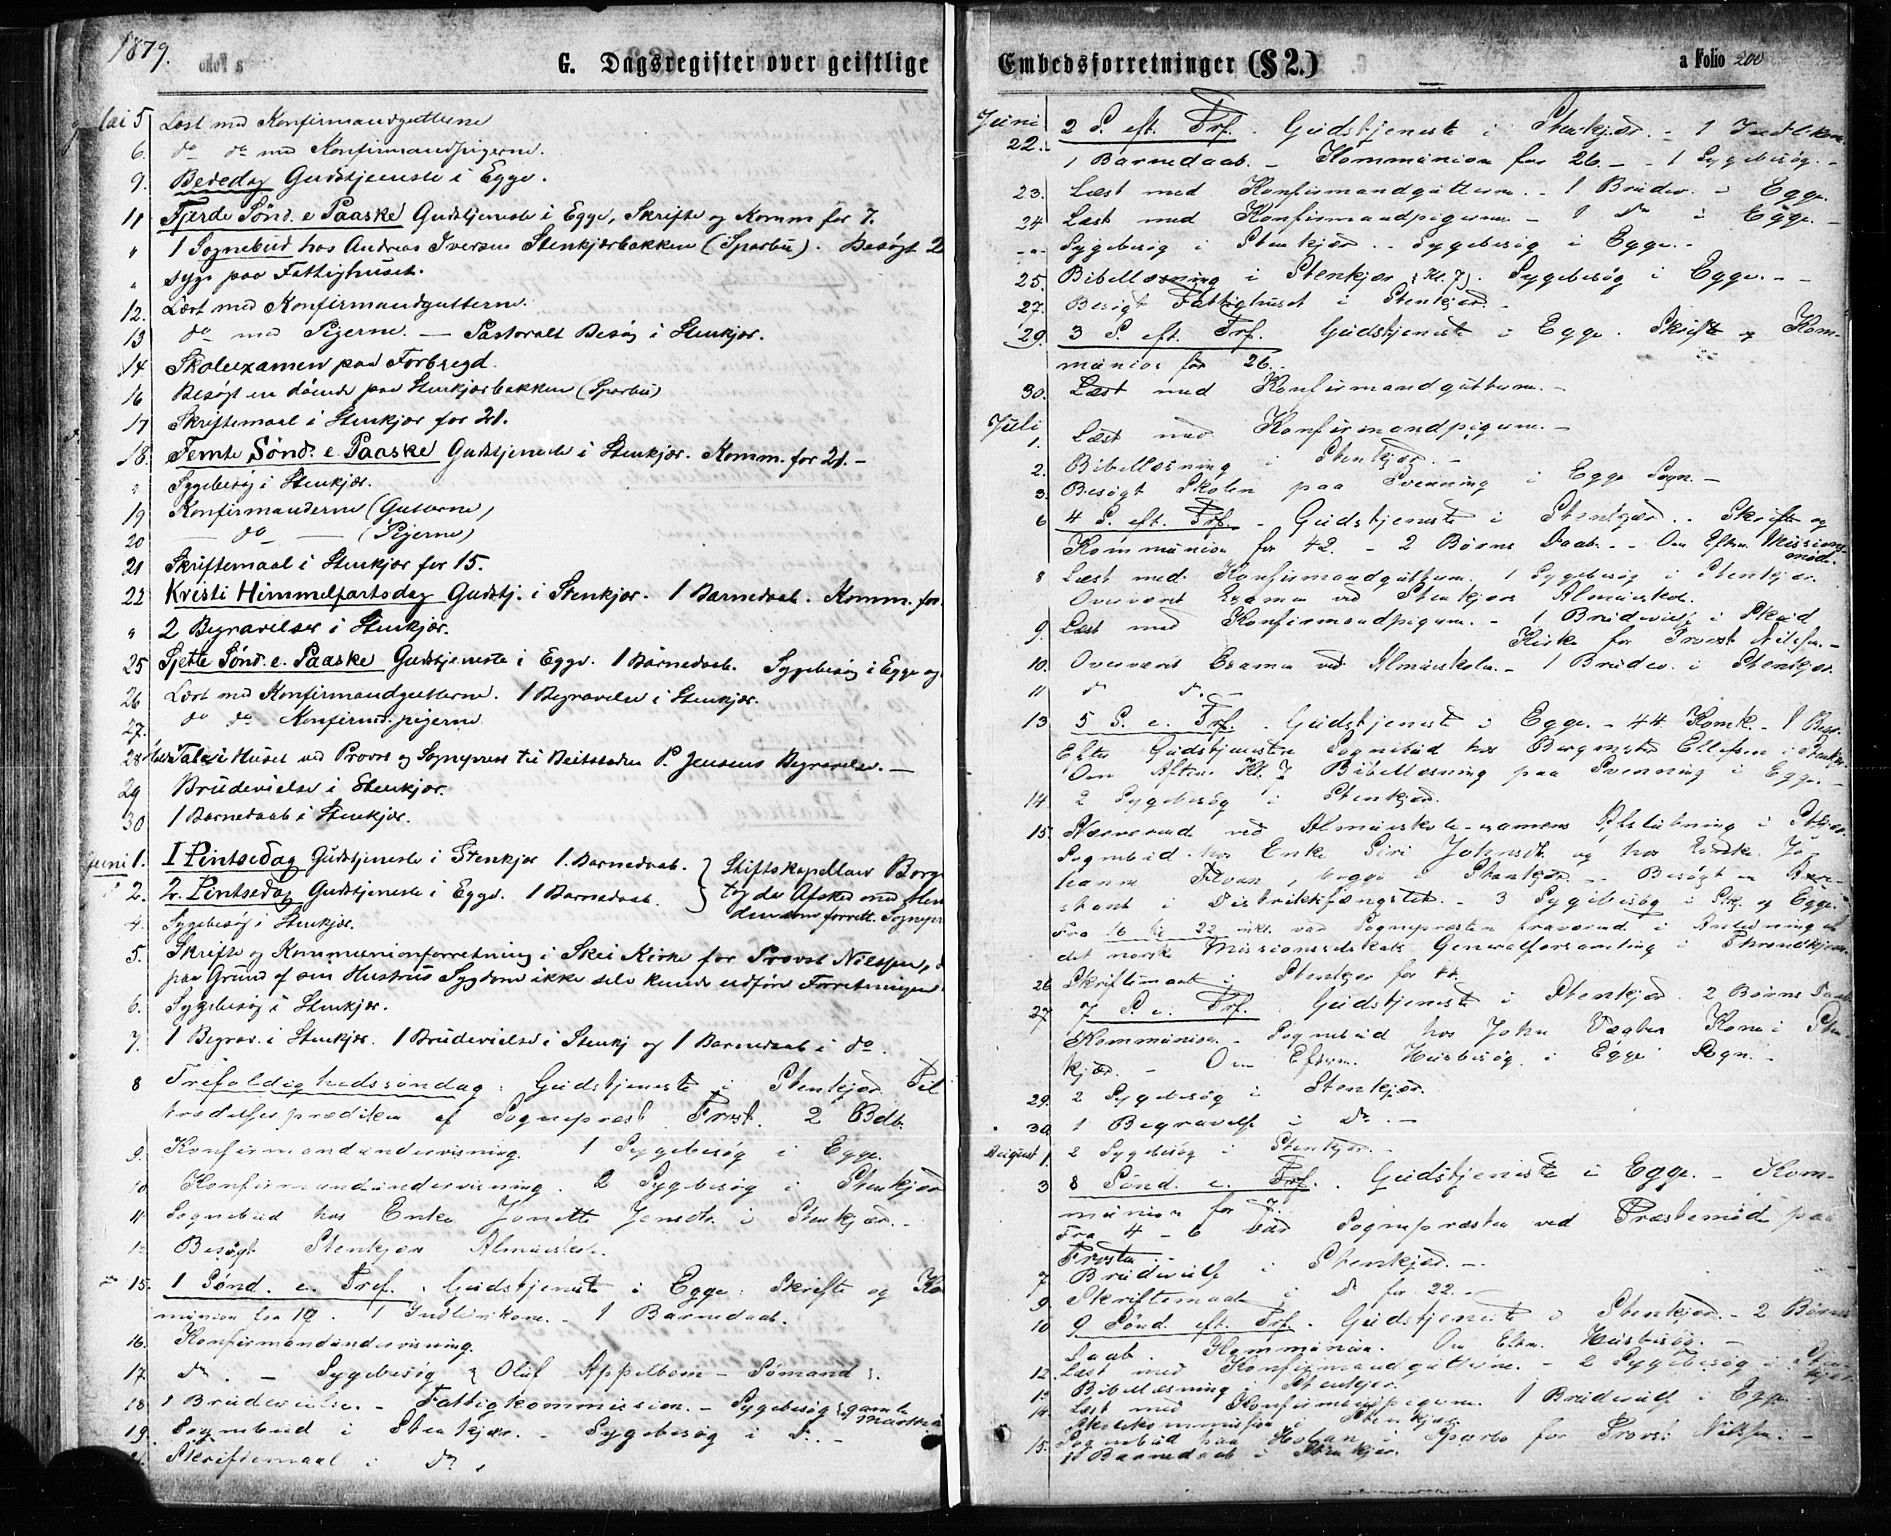 1879.
G. Dagsregister over geistlige
Mai 5 Læst med Konfirmandgutterne
6. do do med Konfirmandpigerne.
9. Bededag Gudstjeneste i Egge.
11 Fjerde Sønd. e Paaske Gudstjeneste i Egge, Skrifte og Komm for 7.
" 1 Sognebud hos Andreas Iversen Stenkjærbakken (Sparbu). Besøgt 2
" syge paa Fattighuset.
12. Læst med Konfirmandgutterne.
13 do med Pigerne. — Pastoralt Besøg i Stenkjær.
14 Skoleexamen paa Forbregd.
16 Besøgt en døende paa Stenkjærbakken (Sparbu)
17 Skriftemaal i Stenkjær for 21.
18. Femte Sønd. e. Paaske Gudstjeneste i Stenkjær. Komm. for 21. —
" Sygebesøg i Stenkjær.
19 Konfirmanderne (Gutterne)
20 — do — (Pigerne)
21 Skriftemaal i Stenkjær for 15.
22 Kristi Himmelfartsdag Gudstj. i Stenkjær. 1 Barnedaab. Komm. for
" 2 Begravelser i Stenkjær.
25 Sjette Sønd. e. Paaske Gudstjeneste i Egge. 1 Barnedaab. Sygebesøg i Egge og
26 Læst med Konfirmandgutterne. 1 Begravelse i Stenkjær.
27. do do Konfirmd. pigerne
28 Tale i Huset ved Provst og Sognepræst til Beitstaden P. Jensens Begravelse. —
29 Brudevielse i Stenkjær.
30 1 Barnedaab i Stenkjær.
Juni 1. 1 Pintsedag Gudstjeneste i Stenkjær 1. Barnedaab. } Stiftskapellan Borg
2. 2. Pintsedag Gudstjeneste i Egge. 1 Barnedaab. } tog da Afsked med Men
4. Sygebesøg i Stenkjær. den som forrett. Sognepr
5. Skrifte og Kommunionforretning i Skei Kirke for Provst Nilssen,
paa Grund af sin Hustrus Sygdom ikke selv kunde udføre Forretningen
6. Sygebesøg i Stenkjær.
7. 1 Begrav. i Stenkjær. 1 Brudevielse i Stenkj og 1 Barnedaab i do.
8 Trefoldighedssøndag. Gudstjeneste i Stenkjær Til
trædelsesprædiken af Sognepræst Frost. 2 Bdb.
9. Konfirmandundervisning. 1 Sygebesøg i Egge.
10. Konfirmandundervisning. 2 Sygebesøg i Stenkjær
11 Sognebud hos Enke Jonette Jensdtr. i Stenkjær. -
Besøgt Stenkjær Almueskole.
15. 1 Sønd. e. Tref. Gudstjeneste i Egge. Skrifte og Ko
munion for 19. 1 Indl. i Kone. - 1 Barnedaab.
16. Konfirmandundervisning.
17. do. - Sygebesøg { Oluf Appelbom - Sømand }.
18. 1 Brudevielse. - Fattigkommission. - Sygebesøg { gamle
19. Sognebud i Stenkjær. - Sygebesøg i do. -
Skriftemaal i do.
Embedsforretninger (§ 2.)
a Folio 200
Juni 22. 2 S. eft. Tref. Gudstjeneste i Stenkjær. - 1 Indl. Kone
1 Barnedaab. - Kommunion for 26. - 1 Sygebesøg. -
23. Læst med Konfirmandgutterne. - 1 Brudev. i Egge.
24 Læst med Konfirmandpigerne - 1 do i Egge. -
- " - Sygebesøg i Stenkjær. - Sygebesøg i Egge. -
25. Bibellæsning i Stenkjær (Kl. 7). Sygebesøg i Egge. -
27. Besøgt Fattighuset i Stenkjær.
29. 3 S. eft. Tref. Gudstjeneste i Egge. Skrifte og Kom-
munion for 26.
30. Læst med Konfirmandgutterne. -
Juli 1. Læst med Konfirmandpigerne. -
2. Bibellæsning i Stenkjær. -
3. Besøgt Skolen paa Svenning i Egge Sogn. -
6 4 S. eft. Tref. - Gudstjeneste i Stenkjær. - Skrifte og
Kommunion for 42. - 2 Børns Daab. - Om Eftm. Missions-
mød.
8 Læst med Konfirmandgutterne. 1 Sygebesøg i Stenkjær.
Overværet Examen ved Stenkjærs Almueskole.
9. Læst med Konfirmandpigerne. - 1 Brudeviels i Skeid
Kirke for Provst Nilssen. -
10. Overværet Examen ved Almueskolen. - 1 Brudev. i Stenkjær.
11 do do. -
13. 5 S. e. Tref. Gudstjeneste i Egge. - 44 Komk. - 1 Begr.
Efter Gudstjenesten Sognebud hos Bergmstd Ellefsen i Stenkjær.
Om Aftenen Kl. 7 Bibellæsning paa Svenning i Egge. -
14. 2 Sygebesøg i Stenkjær.
15. Nærværende ved Almueskole-examens Afslutning i Stkjær.
Sognebud hos Enke Siri Johnsdtr og hos Jo
hanne begge i Stenkjær. - Besøgt en Arre-
stant i Distriktsfængslet. - 3 Sygebesøg i Stkj. og Egge.
Fra 16 til 22 inkl. var Sognepræsten fraværende i Anledning af
det norske Missionsselskabs Generalforsamling i Throndhjem.
26 Skriftemaal i Stenkjær for
27 7 S. e. Tref. Gudstjeneste i Stenkjær. 2 Børns Daab
Kommunion. - Sognebud hos John Kone i Sten
kjær. - Om Eftm. Husbesøg i Egge Sogn. -
29. 2 Sygebesøg i Stenkjær.
30 1 Begravelse i do. -
August 1. 2 Sygebesøg - Stenkjær. -
3 8 Sønd. e. Tref. Gudstjeneste i Egge. - Kom-
munion for 7.
Fra 4 - 6 var Sognepræsten ved Præstemøde paa
Frosten.
7. Brudeviels i Stenkjær. -
9. Skriftemaal i do for 22. -
10 9 Sønd. eft. Tref. Gudstjeneste i Stenkjær. - 2 Børns
Daab. Kommunion. Om Eftm. Husbesøg. -
12. Læst med Konfirmandgutterne. - 2 Sygebesøg i Sten
kjær.
13. Bibellæsning i Stenkjær.
14. Læst med Konfirmandpigerne. 1 Brudeviels i Egge
Skolekommission i Stenkjær.
15. Sognebud paa i Sparbo for Provst Nilssen. -
1 Barnedaab i Stenkjær.